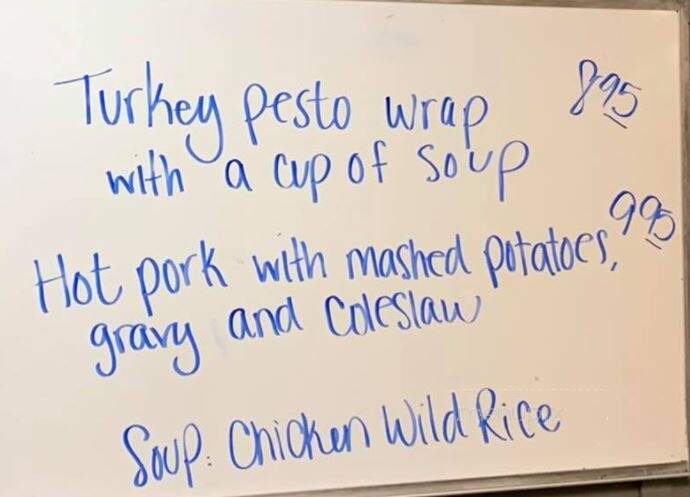 Turkey pesto wrap 8 95
with a cup of soup
Hot pork with mashed potatoes, 9 95
gravy and coleslaw
Soup: Chicken Wild Rice